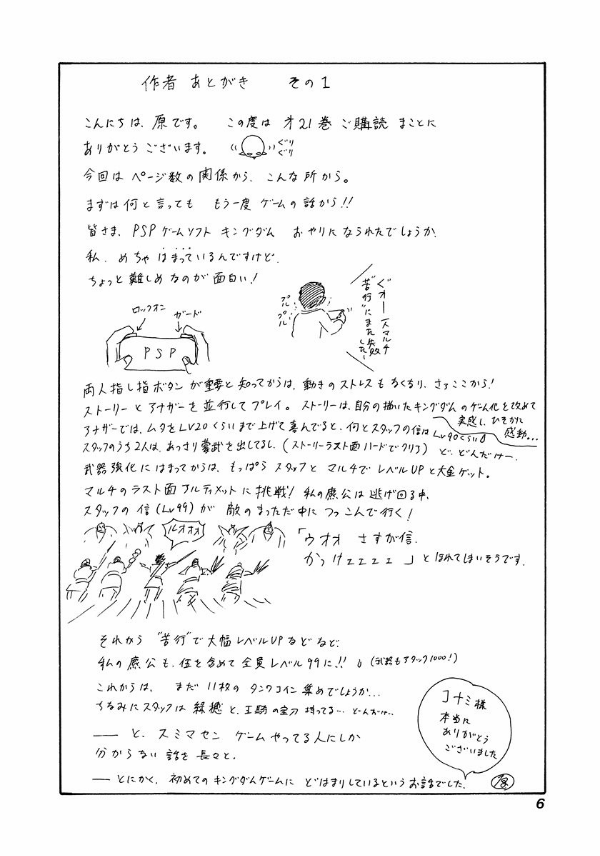 作者 あとがき その1
こんにちは、原です。 この度は 才21巻 ご購読 まことに
ありがとうございます。 ぐり ぐり
今回は ページ数の関係から、こんな所から。
まずは何と言っても もう一度 ゲームの話から!!
皆さま、PSPゲームソフト キングダム おやりになられたでしょうか、
私、めちゃ はまっているんですけど、
ちょっと難しめなのが面白い!
ロックオン
ガード
PSP
プル プル
マルチ
"苦行"にまた失敗
した
両人指し指ボタン が重要と知ってからは、動きのストレスもなくなり、さァここから!
ストーリーとアナザーを並行してプレイ。ストーリーは、自分の描いたキングダムのゲーム化を改めて
実感し、ひそかに
感動…
アナザーでは、ムタをLV20くらいまで上げて喜んでると、何とスタッフの信はLv90くらい
スタッフのうち2人は、あっさり蒙武を出してるし、(ストーリーラスト面ハードでクリア) ど、どんだけー、
武器強化にはまってからは、もっぱら スタッフと マルチで レベルUPと大金ゲット。
マルチのラスト面アルティメットに 挑戦! 私の麃公は逃げ回る中、
スタッフの 信(Lv99)が 敵のまっただ中に つっこんで行く!
ルオオォ
「ウオオ さすが信、
かっけェェェェ」と ほれてしまいそうです。
それから "苦行"で大幅レベルUPなどなど、
私の麃公も、信を含めて全員レベル99に!! (武器もアタック1000!)
これからは、 まだ 11枚の タンワコイン 集めでしょうか…
ちなみにスタッフは 縁穂と、王騎の宝刀 持ってる… どんだけ…
―― と、スミマセン ゲームやってる人にしか
分からない 話を 長々と、
―― とにかく、初めてのキングダムゲームに どはまりしているというお話でした。
コナミ様
本当に
ありがとう
ございました
原
6